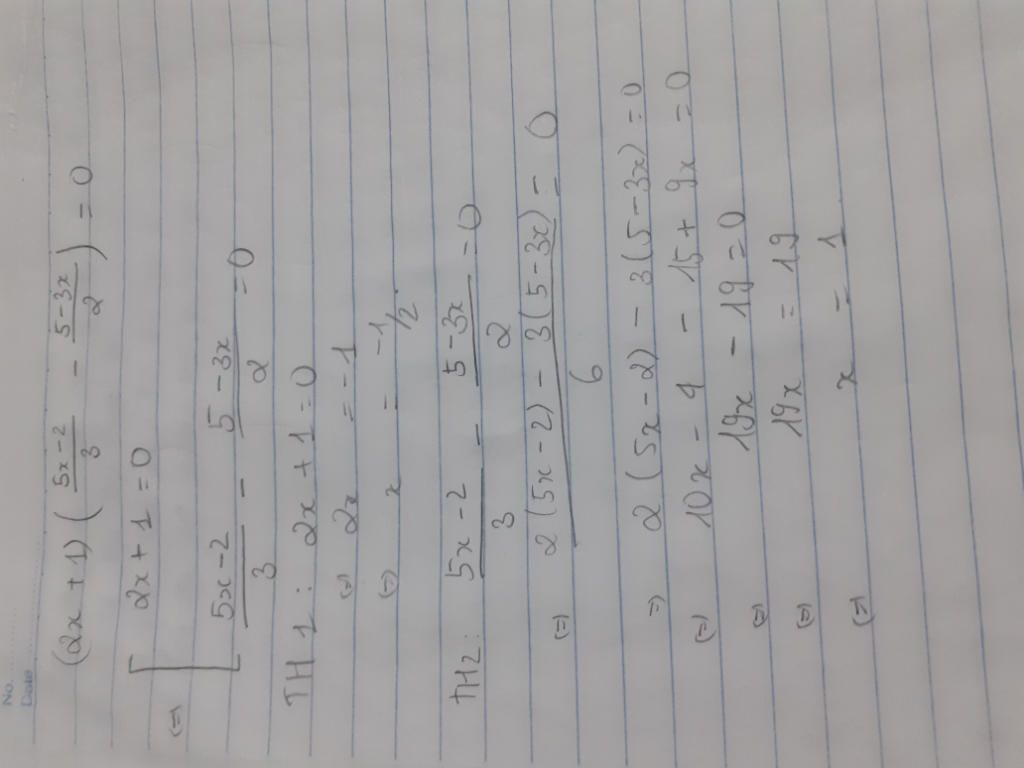 No.
Date
(2x + 1) ( (5x-2)/3 - (5-3x)/2 ) = 0
(=) [ 2x + 1 = 0
(5x-2)/3 - (5-3x)/2 = 0
TH 1: 2x + 1 = 0
(=) 2x = -1
(=) x = -1/2
TH2: (5x-2)/3 - (5-3x)/2 = 0
(=) (2(5x-2) - 3(5-3x))/6 = 0
=) 2(5x-2) - 3(5-3x) = 0
(=) 10x - 4 - 15 + 9x = 0
(=) 19x - 19 = 0
(=) 19x = 19
(=) x = 1